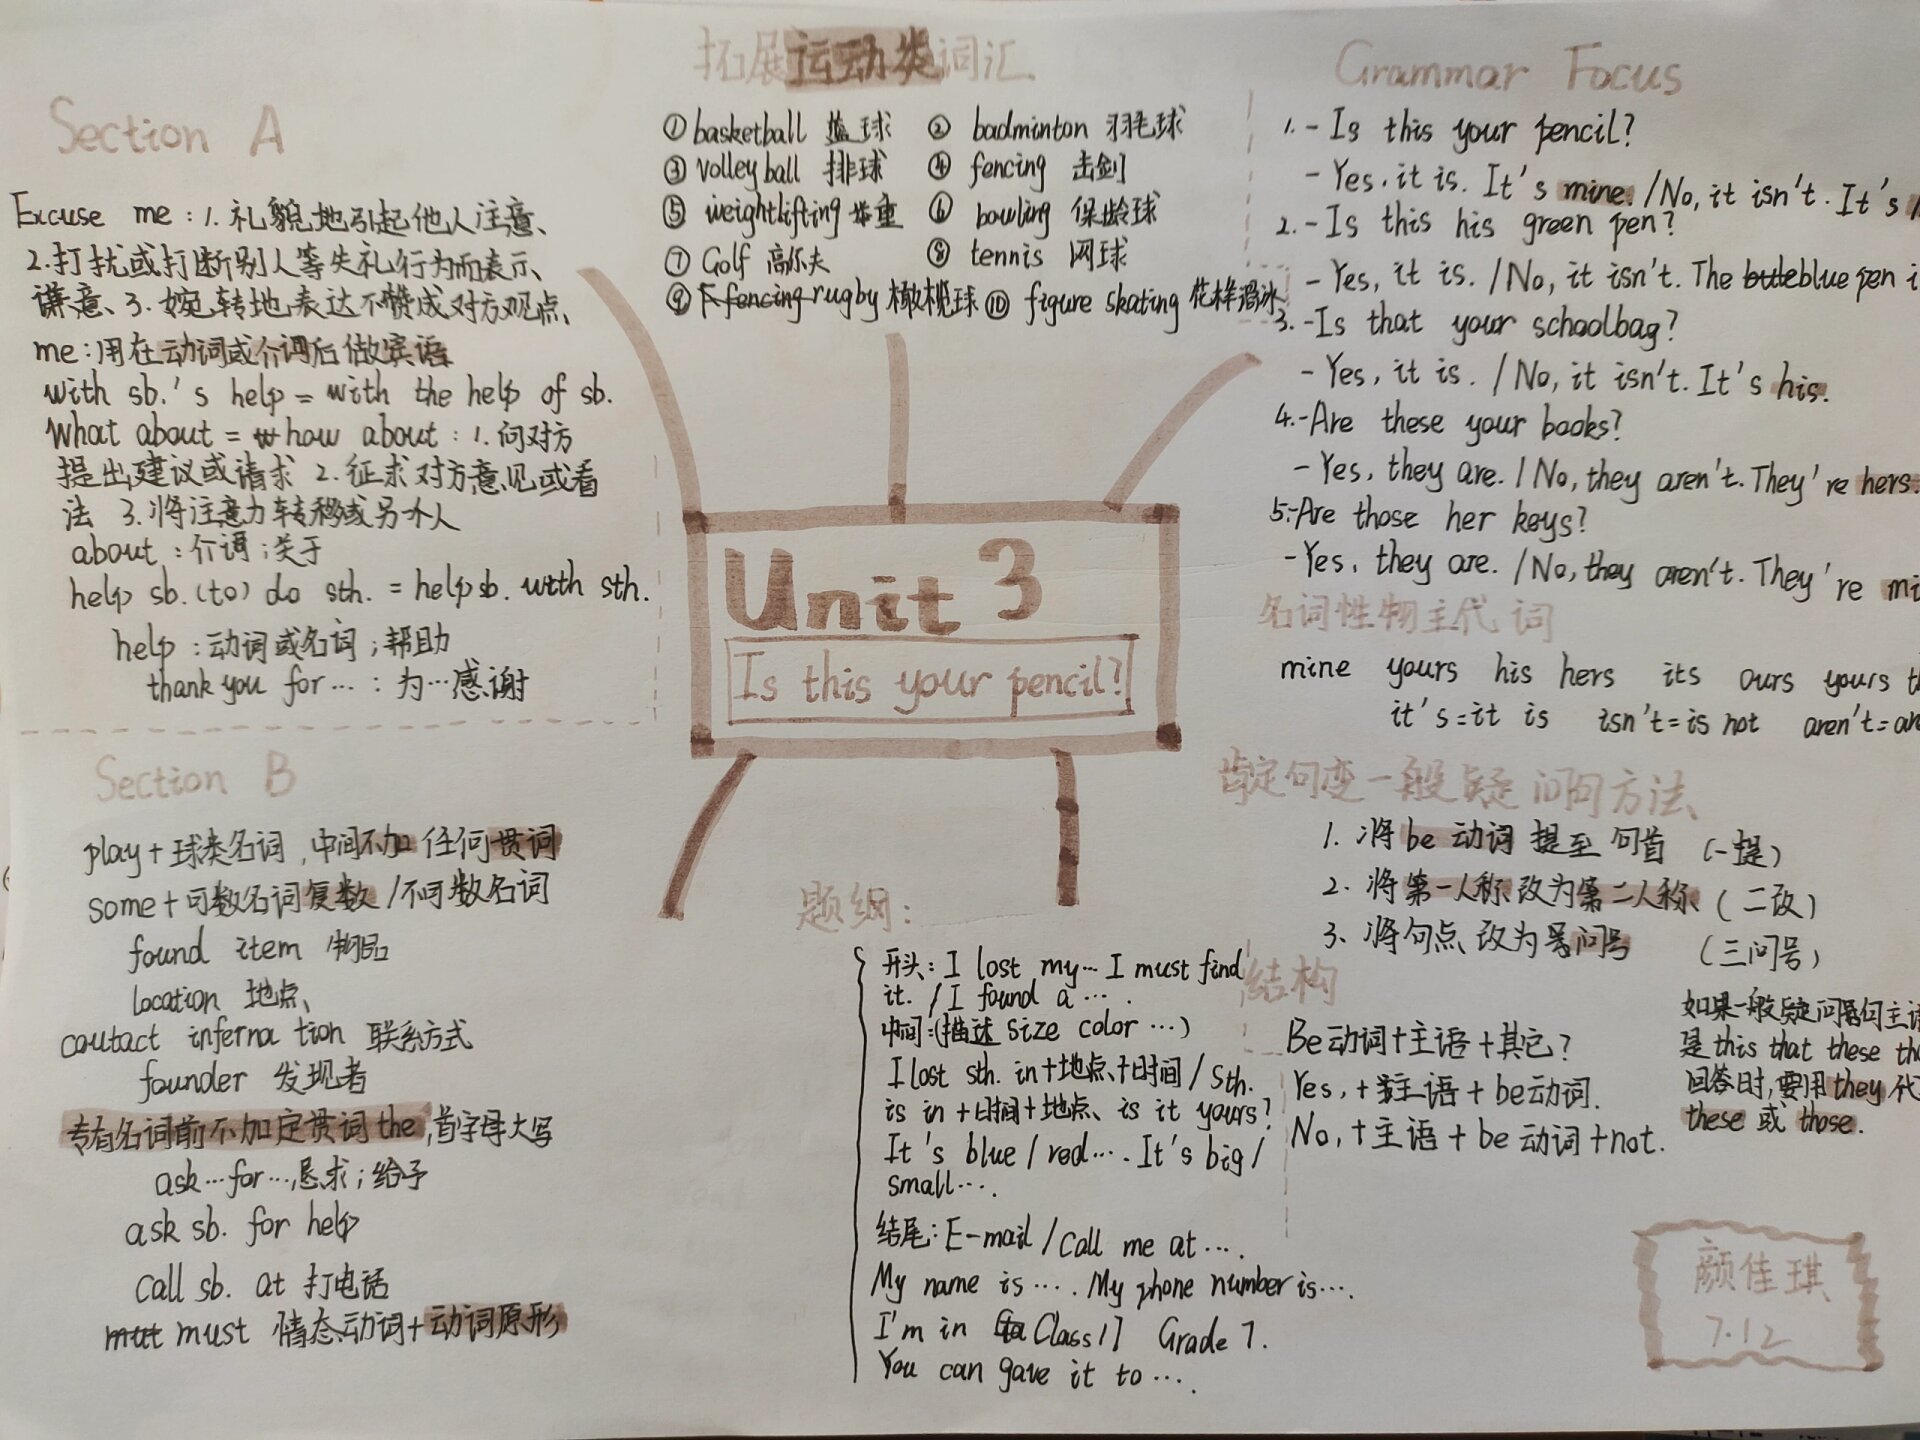 Section A
Excuse me:1.礼貌地引起他人注意、
2.打扰或打断别人等失礼行为而表示、
谦意、3.婉转地表达不赞成对方观点、
me:用在动词或介词后做宾语
with sb.'s help = with the help of sb.
What about = how about:1.向对方
提出建议或请求 2.征求对方意见或看
法 3.将注意力转移或另外人
about:介语;关于
help sb.(to) do sth. = help sb. with sth.
help:动词或名词;帮助
thank you for…:为…感谢
Section B
play+球类名词,中间不加任何贯词
some+可数名词复数/不可数名词
found item 物品
location 地点、
coutact inferna tion 联系方式
founder 发现者
专有名词前不加定贯词the,首字母大写
ask…for…,恳求;给予
ask sb. for help
Call sb. at 打电话
must 情态动词+动词原形
拓展运动类词汇
①basketball 篮球 ② badminton 羽毛球
③volleyball 排球 ④ fencing 击剑
⑤ weightlifting 举重 ⑥ bowling 保龄球
⑦ Golf 高尔夫 ⑧ tennis 网球
⑨ fencing rugby 橄榄球 ⑩ figure skating 花样滑冰
Unit 3
Is this your pencil?
题纲:
开头:I lost my… I must find
it. /I found a ….
中间:(描述 size color …)
I lost sth. in+地点、+时间/Sth.
is in +时间+地点、is it yours?
It's blue/red…. It's big/
small….
结尾:E-mail/Call me at ….
My name is …. My phone number is….
I'm in Class 1] Grade 7.
You can gave it to ….
Grammar Focus
1.-Is this your pencil?
-Yes,it is. It's mine./No,it isn't. It's
2.-Is this his green pen?
-Yes, it is./No, it isn't. The blue pen
3.-Is that your schoolbag?
-Yes, it is./No, it isn't. It's his.
4.-Are these your books?
-Yes, they are./No, they aren't. They're hers.
5.-Are those her keys?
-Yes, they are./No, they aren't. They're
名词性物主代词
mine yours his hers its ours yours
it's=it is isn't=is not aren't=
肯定句变一般疑问句方法
1.将be动词提至句首 (一提)
2.将第一人称改为第二人称 (二改)
3、将句点改为问号 (三问号)
结构
Be动词+主语+其它?
Yes,+主语+be动词.
No,+主语+be动词+not.
如果一般疑问句主语
是this that these
回答时,要用they代
these 或 those.
颜佳琪
7.12